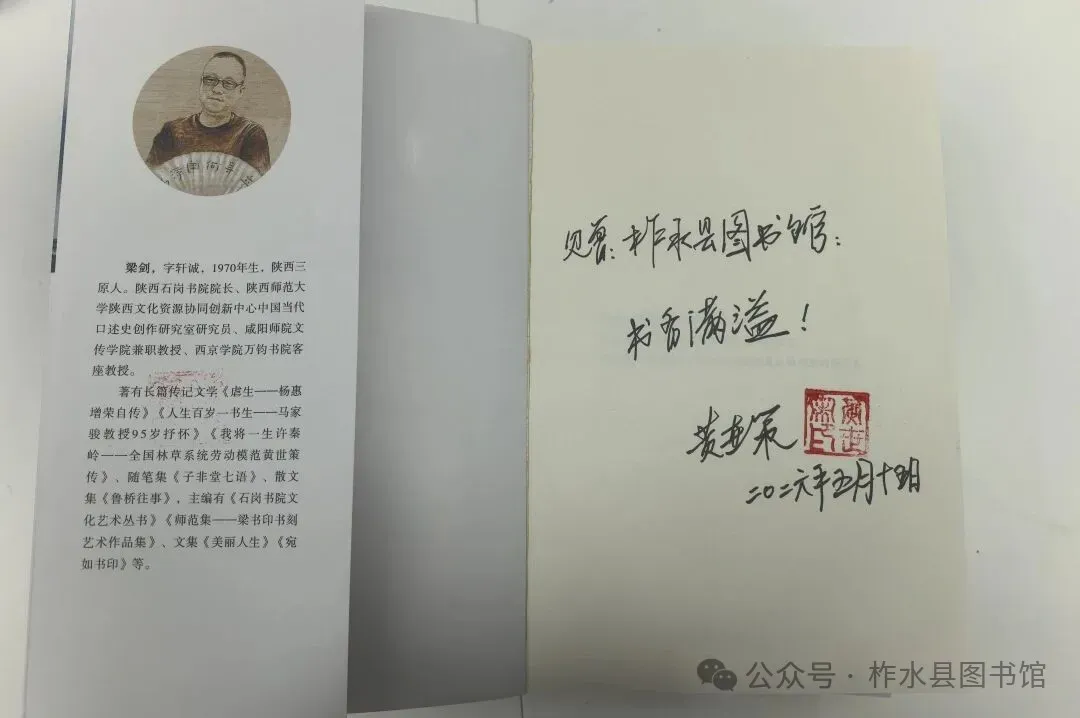 梁剑，字轩诚，1970年生，陕西三
原人。陕西石岗书院院长、陕西师范大
学陕西文化资源协同创新中心中国当代
口述史创作研究室研究员、咸阳师院文
传学院兼职教授、西京学院万钧书院客
座教授。
著有长篇传记文学《虐生——杨惠
增荣自传》《人生百岁一书生——马家
骏教授95岁抒怀》《我将一生许秦
岭——全国林草系统劳动模范黄世策
传》、随笔集《子非堂七语》、散文
集《鲁桥往事》，主编有《石岗书院文
化艺术丛书》《师范集——梁书印书刻
艺术作品集》、文集《美丽人生》《宛
如书印》等。
见曾：柞水县图书馆：
书香满溢！
黄世策
二〇二六年五月十五日
公众号·柞水县图书馆